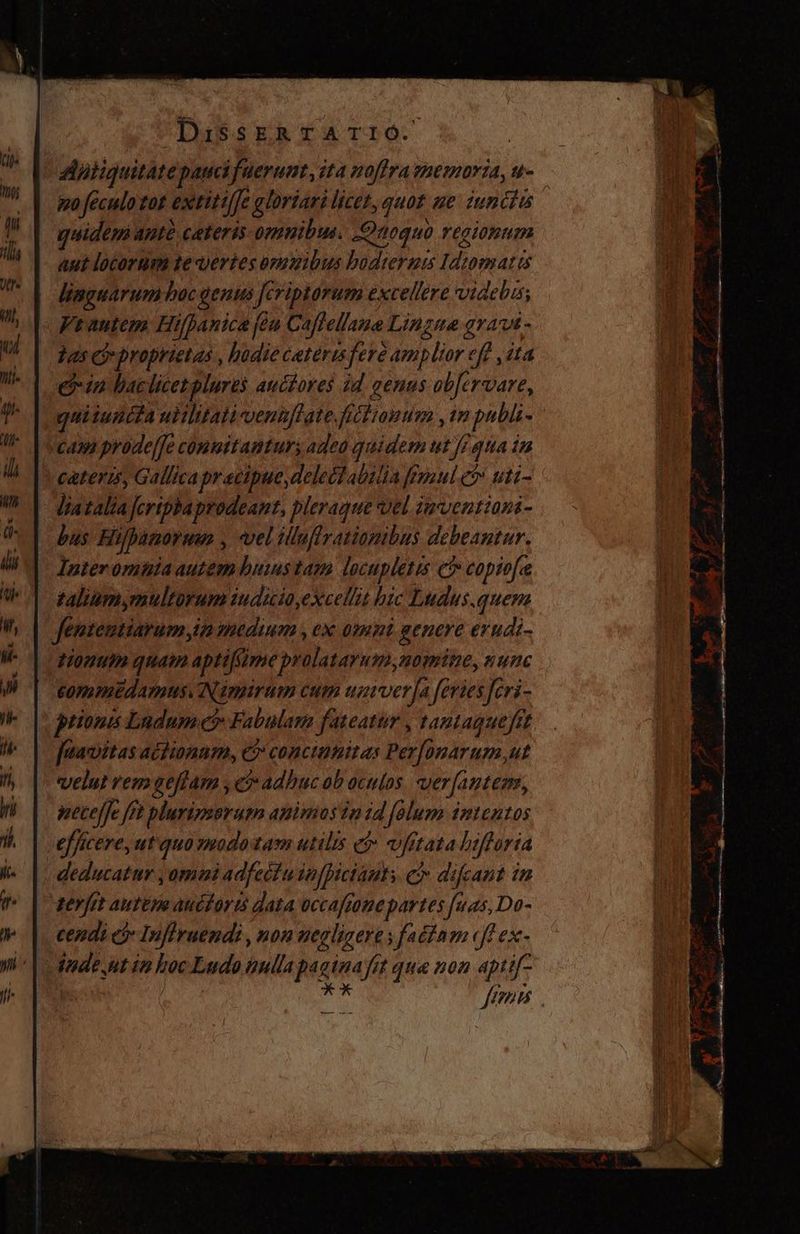 DISSERTATIO.
Antiquitate pauci fuerunt, ita nostra memoria, u-
no seculo tot extitisse gloriari licet, quot ne iunctis
quidem antè cæteris omnibus. Quoquò regionum
aut locorum te vertes omnibus hodiernis Idiomatis
linguarum hoc genus scriptorum excellere videbis;
Vt autem Hispanicæ seu Castellanæ Linguæ gravi-
tas & proprietas, hodie cæteris ferè amplior est, ita
& in hac licet plures auctores id genus observare,
qui iuncta utilitati venustate, fictionum, in publi-
cam prodesse connitantur; adeò quidem ut si qua in
cæteris, Gallica præcipue, delectabilia simul & uti-
lia talia scripta prodeant, pleraque vel inventioni-
bus Hispanorum, vel illustrationibus debeantur.
Inter omnia autem huius tam locupletis & copiosæ
talium, multorum iudicio, excellit hic Ludus, quem
sententiarum, in medium, ex omni genere erudi-
tionum quam aptissime prolatarum, nomine, nunc
commēdamus. Nimirum cum universa series scri-
ptionis Ludum & Fabulam fateatur, tantaque sit
suavitas actionum, & concinnitas Personarum, ut
velut rem gestam, & adhuc ob oculos versantem,
necesse sit plurimorum animos in id solum intentos
efficere, ut quo modo tam utilis & usitata histioria
deducatur, omni adfectu inspiciant, & discant in
tersit autem auctoris data occasione partes suas, Do-
cendi & Instruendi, non negligere; factum est ex-
inde, ut in hoc Ludo nulla pagina sit quæ non aptis-
** simis